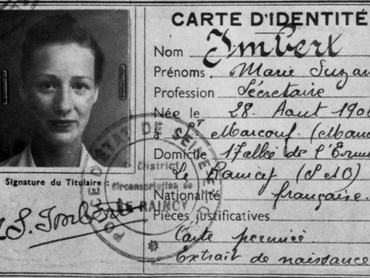 CARTE D'IDENTITÉ
Nom Imbert
Prénoms Marie Suzan
Profession Secrétaire
Née le 28 Aout 190
à St Marcouf (Manc
Domicile 1 Allée de l'Erm
Le Raincy (S & O)
Nationalité française.
Pièces justificatives
Carte perimée
Extrait de naissance
Signature du Titulaire :
S. Imbert
DE SEINE
District
Circonscription de
LE RAINCY